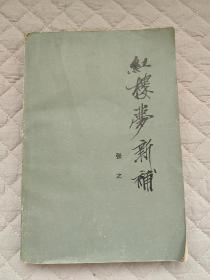 紅樓夢新補
张之